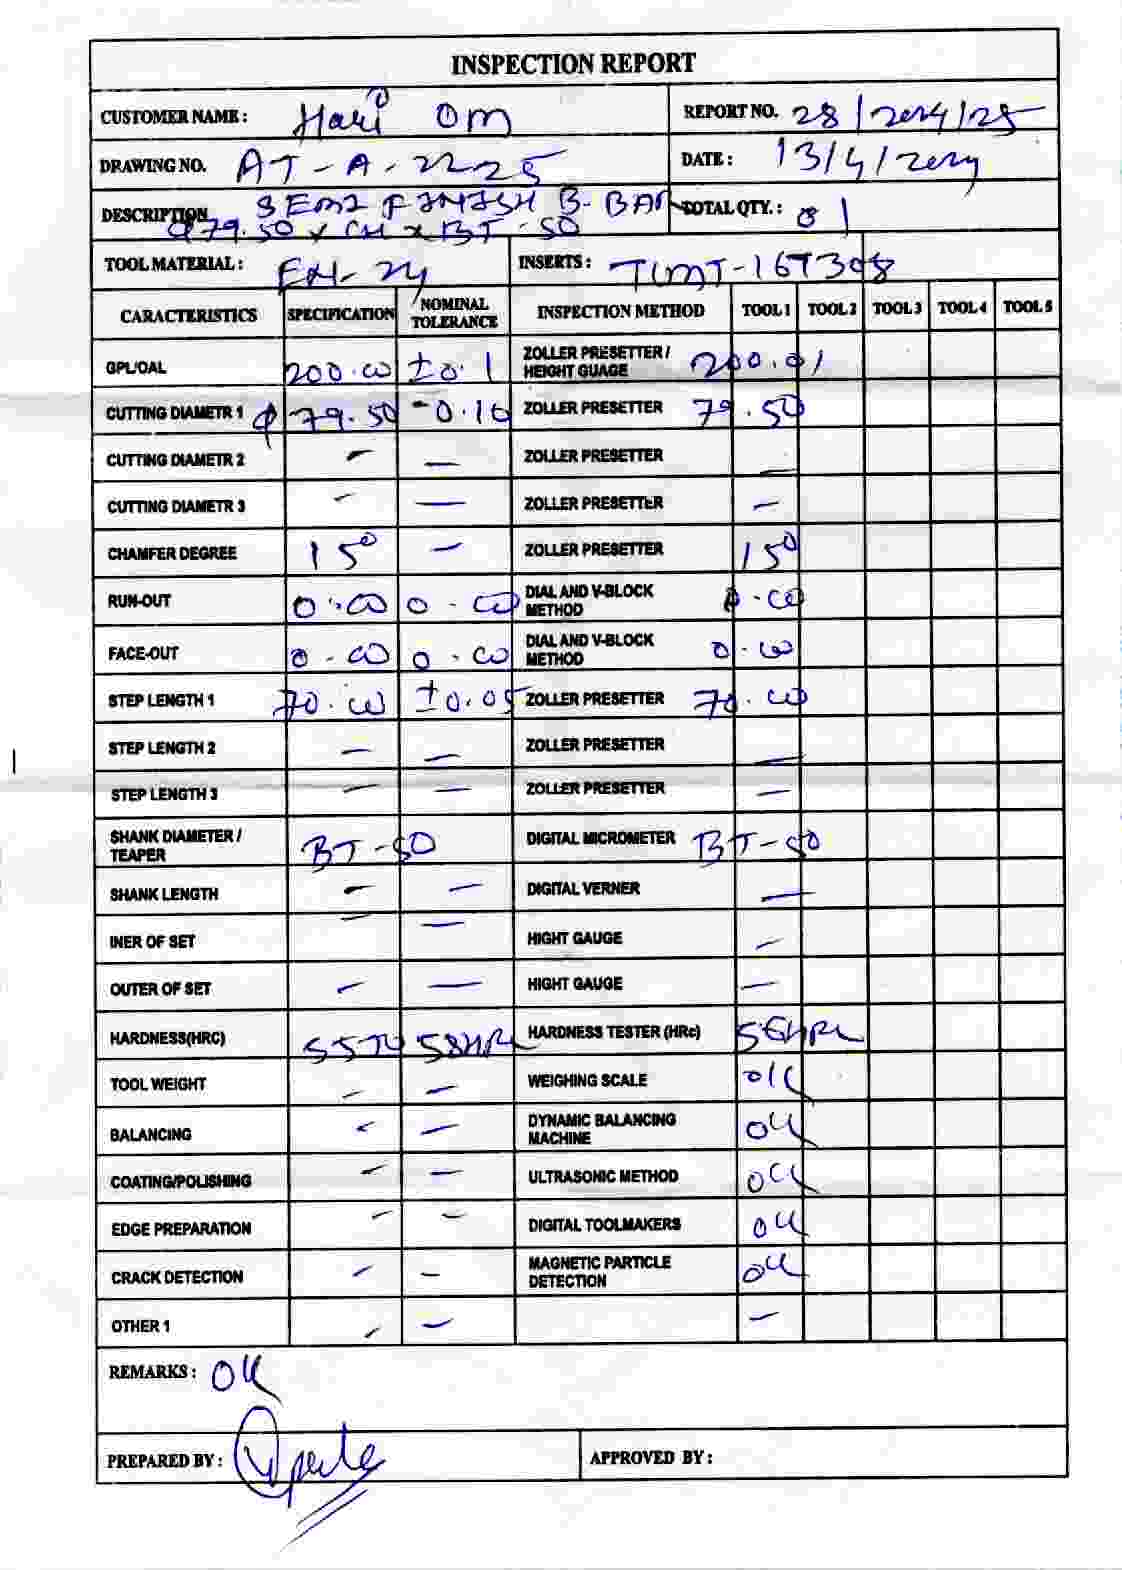 INSPECTION REPORT
CUSTOMER NAME : Hari Om REPORT NO. 28/2024/25
DRAWING NO. AT-A-2225 DATE : 13/4/2024
DESCRIPTION SEMI FINISH B-BAR TOTAL QTY. : 01
φ79.50 x CH x BT-50
TOOL MATERIAL : EN-24 INSERTS : TCMT-16T308
CARACTERISTICS SPECIFICATION NOMINAL TOLERANCE INSPECTION METHOD TOOL 1 TOOL 2 TOOL 3 TOOL 4 TOOL 5
GPL/OAL 200.00 ±0.1 ZOLLER PRESETTER / HEIGHT GUAGE 200.01
CUTTING DIAMETR 1 φ 79.50 -0.10 ZOLLER PRESETTER 79.50
CUTTING DIAMETR 2 - - ZOLLER PRESETTER -
CUTTING DIAMETR 3 - - ZOLLER PRESETTER -
CHAMFER DEGREE 15° - ZOLLER PRESETTER 15°
RUN-OUT 0.00 0.00 DIAL AND V-BLOCK METHOD 0.00
FACE-OUT 0.00 0.00 DIAL AND V-BLOCK METHOD 0.00
STEP LENGTH 1 70.00 ±0.05 ZOLLER PRESETTER 70.00
STEP LENGTH 2 - - ZOLLER PRESETTER -
STEP LENGTH 3 - - ZOLLER PRESETTER -
SHANK DIAMETER / TEAPER BT-50 DIGITAL MICROMETER BT-50
SHANK LENGTH - - DIGITAL VERNER -
INER OF SET - - HIGHT GAUGE -
OUTER OF SET - - HIGHT GAUGE -
HARDNESS(HRC) 55TO 58HRc HARDNESS TESTER (HRc) 56HRc
TOOL WEIGHT - - WEIGHING SCALE OK
BALANCING - - DYNAMIC BALANCING MACHINE OK
COATING/POLISHING - - ULTRASONIC METHOD OK
EDGE PREPARATION - - DIGITAL TOOLMAKERS OK
CRACK DETECTION - - MAGNETIC PARTICLE DETECTION OK
OTHER 1 - - -
REMARKS : OK
PREPARED BY : APPROVED BY :